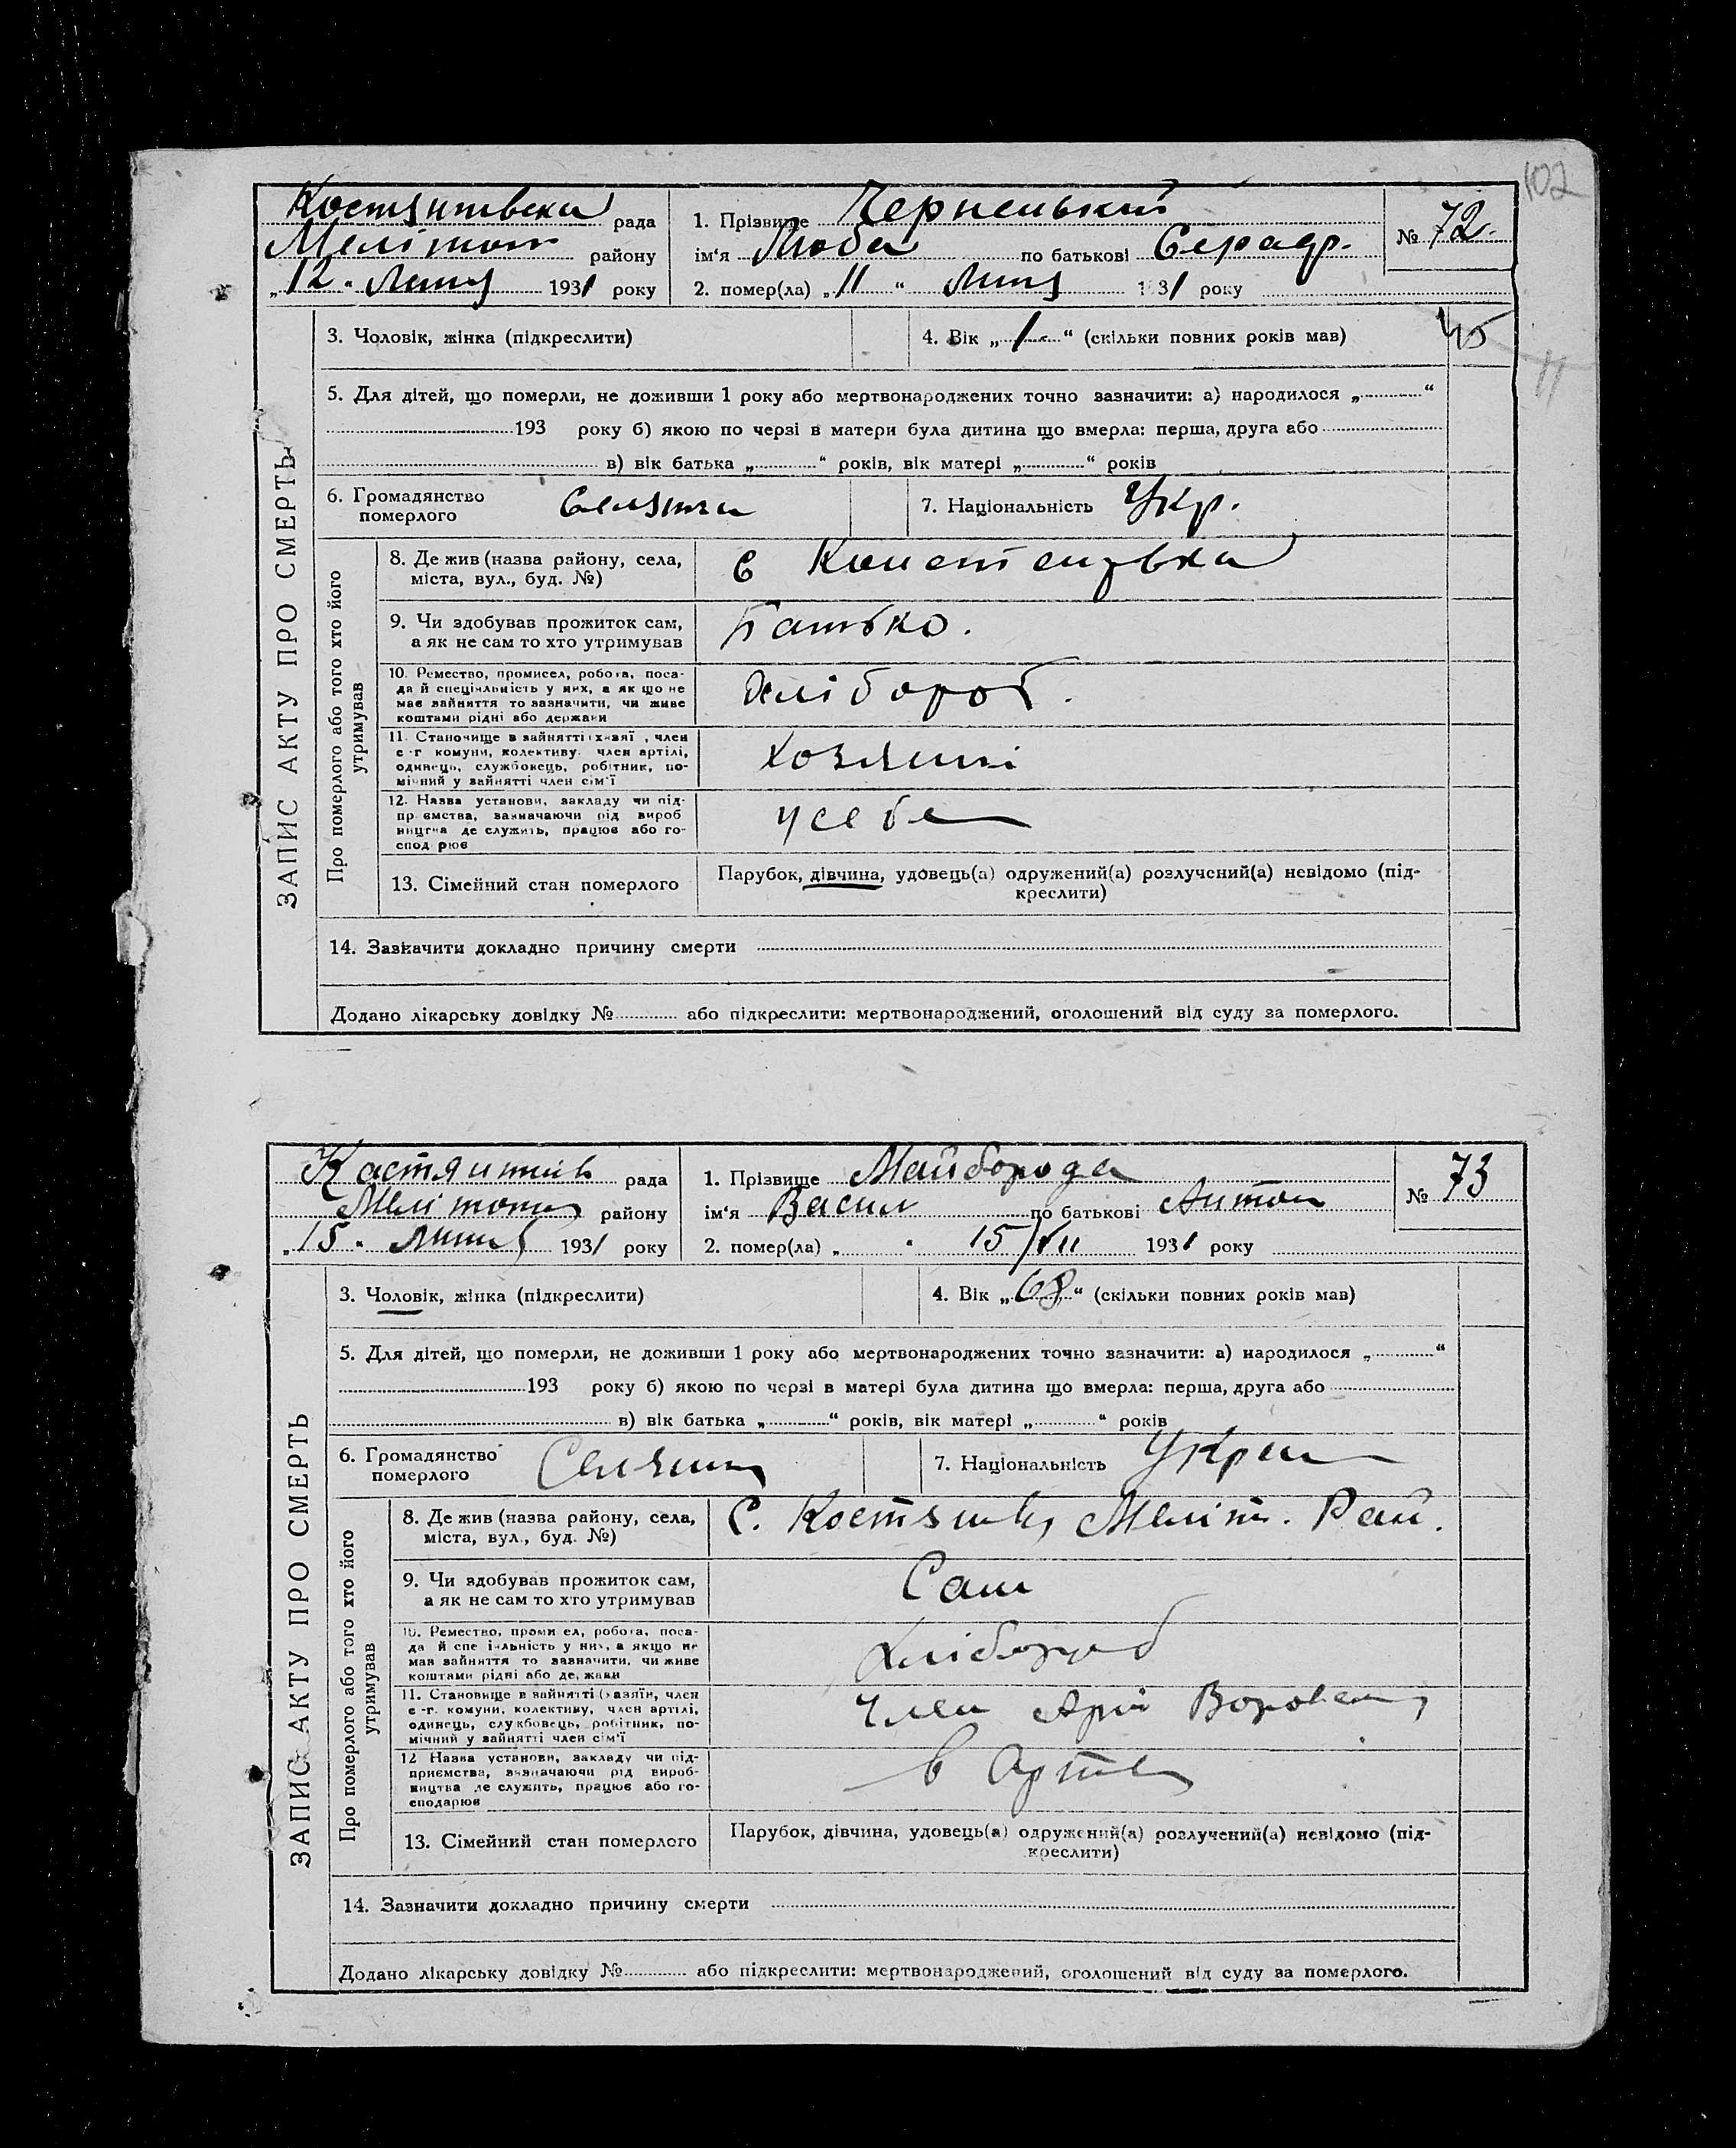 102
Костянтівски рада
Меліτοπ району
„12" Липня 1931 року
1. Прізвище Черненький
ім'я Люба по батькові Серафр.
2. помер(ла) „11" Липня 1931 року
№ 72.
ЗАПИС АКТУ ПРО СМЕРТЬ
3. Чоловік, жінка (підкреслити) 4. Вік „1" (скільки повних років мав)
45
11
5. Для дітей, що померли, не доживши 1 року або мертвонароджених точно зазначити: а) народилося „ "
193 року б) якою по черзі в матери була дитина що вмерла: перша, друга або
в) вік батька „ " років, вік матері „ " років
6. Громадянство померлого Селянин 7. Національність Укр.
Про померлого або того хто його утримував
8. Де жив (назва району, села,
міста, вул., буд. №)
9. Чи здобував прожиток сам,
а як не сам то хто утримував
Батько.
10. Ремество, промисел, робота, поса-
да й спеціяльність у них, а як що не
має зайняття то зазначити, чи живе
коштами рідні або держави
Хлібороб.
11. Становище в зайнятті (хазяї , член
с-г комуни, колективу, член артілі,
одинець, службовець, робітник, по-
мічний у зайнятті член сім'ї
12. Назва установи, закладу чи під-
пр ємства, зазначаючи рід вироб
ництва де служить, працює або го-
спод рює
у себе
13. Сімейний стан померлого
Парубок, дівчина, удовець(а) одружений(а) розлучений(а) невідомо (під-
креслити)
14. Зазначити докладно причину смерти
Додано лікарську довідку № або підкреслити: мертвонароджений, оголошений від суду за померлого.
Кастянтів рада
Мелітопол району
„15" Липня 1931 року
1. Прізвище Майборода
ім'я Васил по батькові Антон
2. помер(ла) „ " 15/VII 1931 року
№ 73
ЗАПИС АКТУ ПРО СМЕРТЬ
3. Чоловік, жінка (підкреслити) 4. Вік „68" (скільки повних років мав)
5. Для дітей, що померли, не доживши 1 року або мертвонароджених точно зазначити: а) народилося „ "
193 року б) якою по черзі в матері була дитина що вмерла: перша, друга або
в) вік батька „ " років, вік матері „ " років
6. Громадянство померлого Селянин 7. Національність Украин
Про померлого або того хто його утримував
8. Де жив (назва району, села,
міста, вул., буд. №)
С. Костянтів, Меліт. Рай.
9. Чи здобував прожиток сам,
а як не сам то хто утримував
Сам
10. Ремество, проми ел, робота, поса-
да й спе іяльність у них, а якщо не
має зайняття то зазначити, чи живе
коштами рідні або держави
Хлібороб
11. Становище в зайнятті (хазяїн, член
с-г. комуни, колективу, член артілі,
одинець, службовець, робітник, по-
мічний у зайнятті член сім'ї
Член
12 Назва установи, закладу чи під-
приємства, зазначаючи рід вироб-
ництва де служить, працює або го-
сподарює
в Артел
13. Сімейний стан померлого
Парубок, дівчина, удовець(а) одружений(а) розлучений(а) невідомо (під-
креслити)
14. Зазначити докладно причину смерти
Додано лікарську довідку № або підкреслити: мертвонароджений, оголошений від суду за померлого.